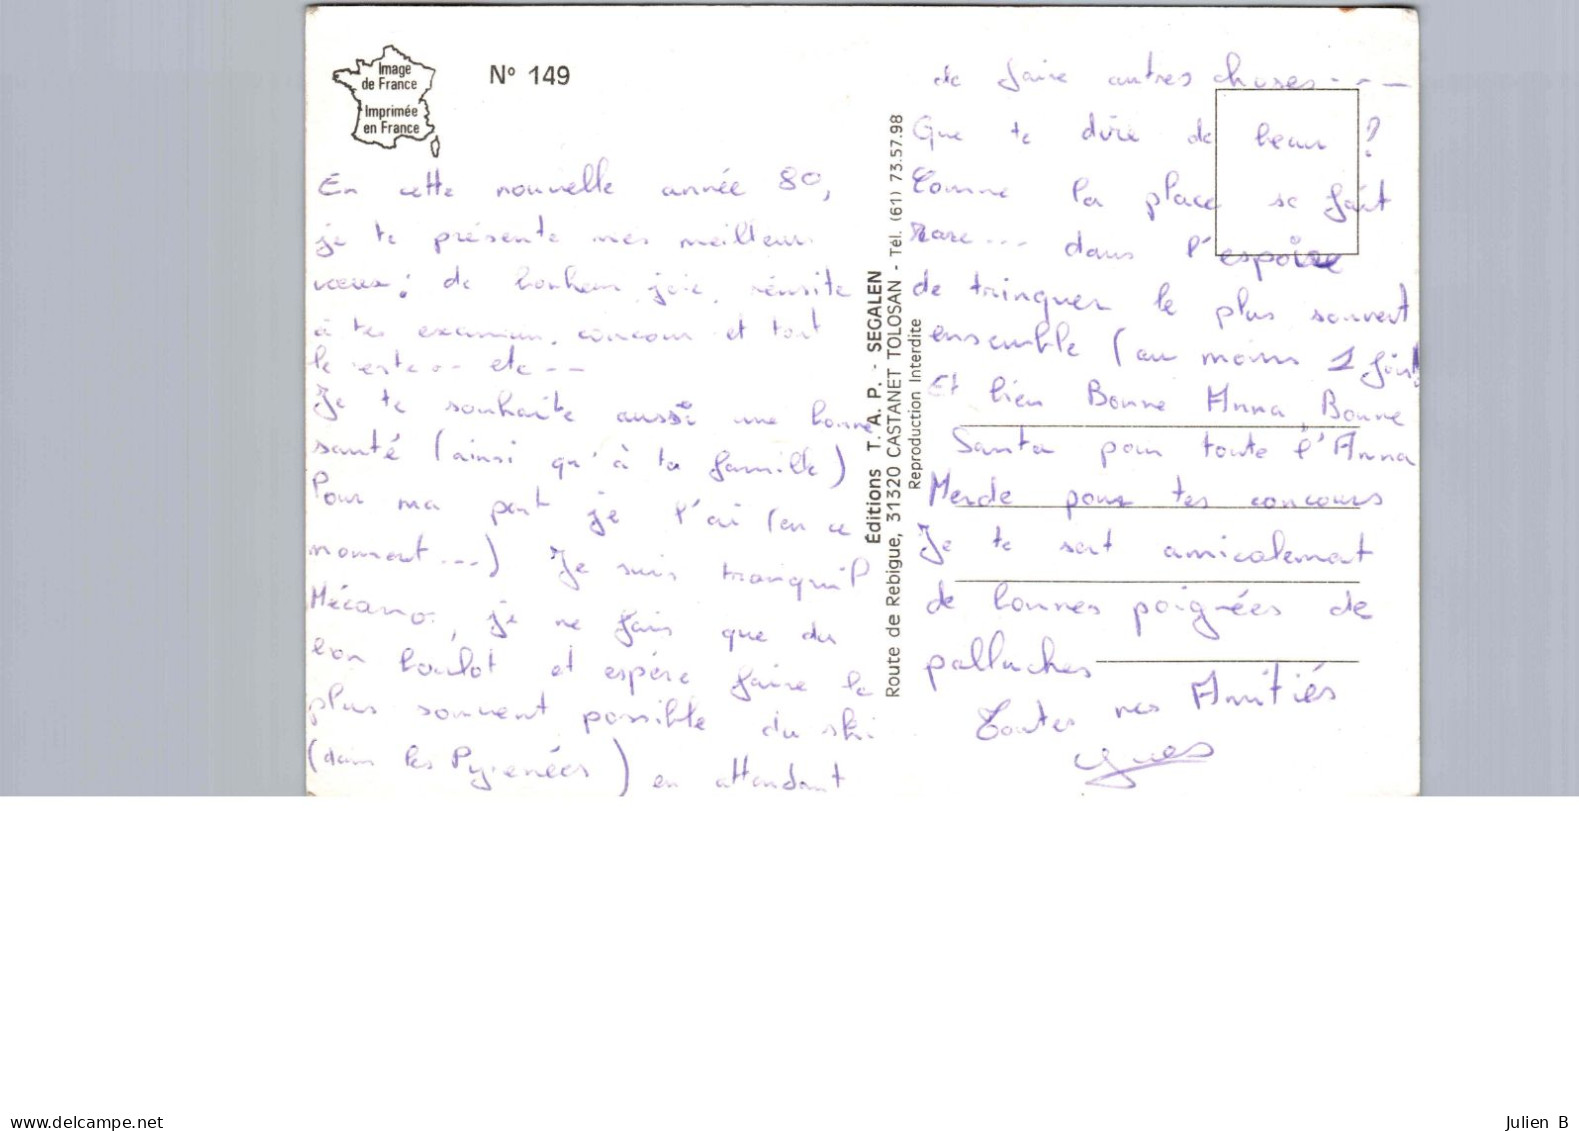 Image
de France
Imprimée
en France
N° 149
En cette nouvelle année 80,
je te présente mes meilleurs
vœux : de bonheur, joie, réussite
à tes examens, concours et tout
le reste -- etc --
Je te souhaite aussi une bonne
santé (ainsi qu'à ta famille)
Pour ma part je l'ai (en ce
moment...) Je suis tranquil
Mécano, je ne fais que du
bon boulot et espère faire le
plus souvent possible du ski
(dans les Pyrénées) en attendant
Éditions T. A. P. - SEGALEN
Route de Rebigue, 31320 CASTANET TOLOSAN - Tél. (61) 73.57.98
Reproduction Interdite
de faire autres choses ---
Que te dire de beau ?
Comme la place se fait
rare... dans l'espoire
de trinquer le plus souvent
ensemble (au moins 1 fois!
Et bien Bonne Anna Bonne
Santa pour toute l'Anna
Merde pour tes concours
Je te sert amicalement
de bonnes poignées de
palluches
Toutes mes Amitiés
Yves
www.delcampe.net
Julien B